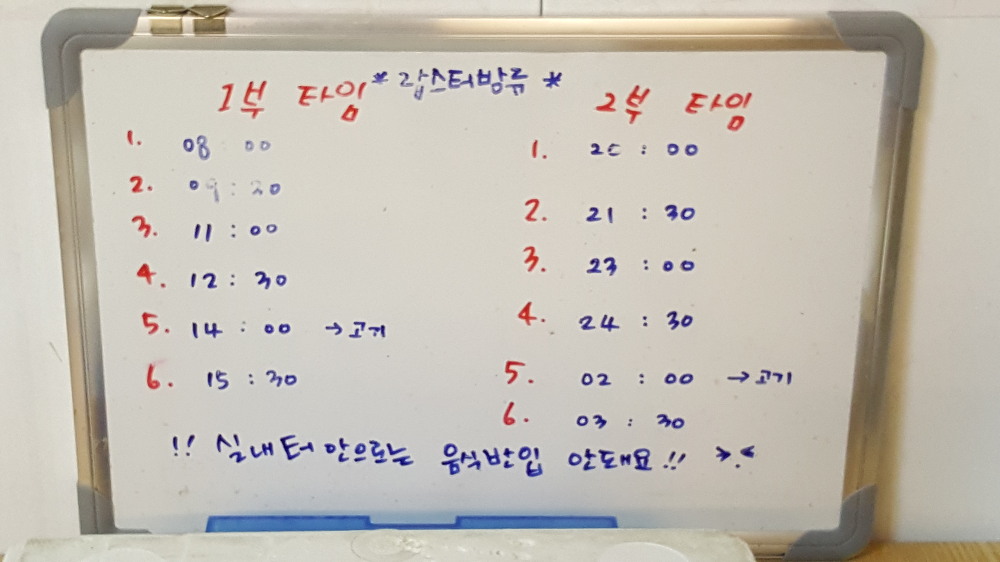 *랍스터방류*
1부 타임
1. 08 00
2. 09:30
3. 11:00
4. 12:30
5. 14:00 →고기
6. 15:30
2부 타임
1. 20:00
2. 21:30
3. 23:00
4. 24:30
5. 02:00 →고기
6. 03:30
!! 실내터 안으로는 음식반입 안돼요!! >.<